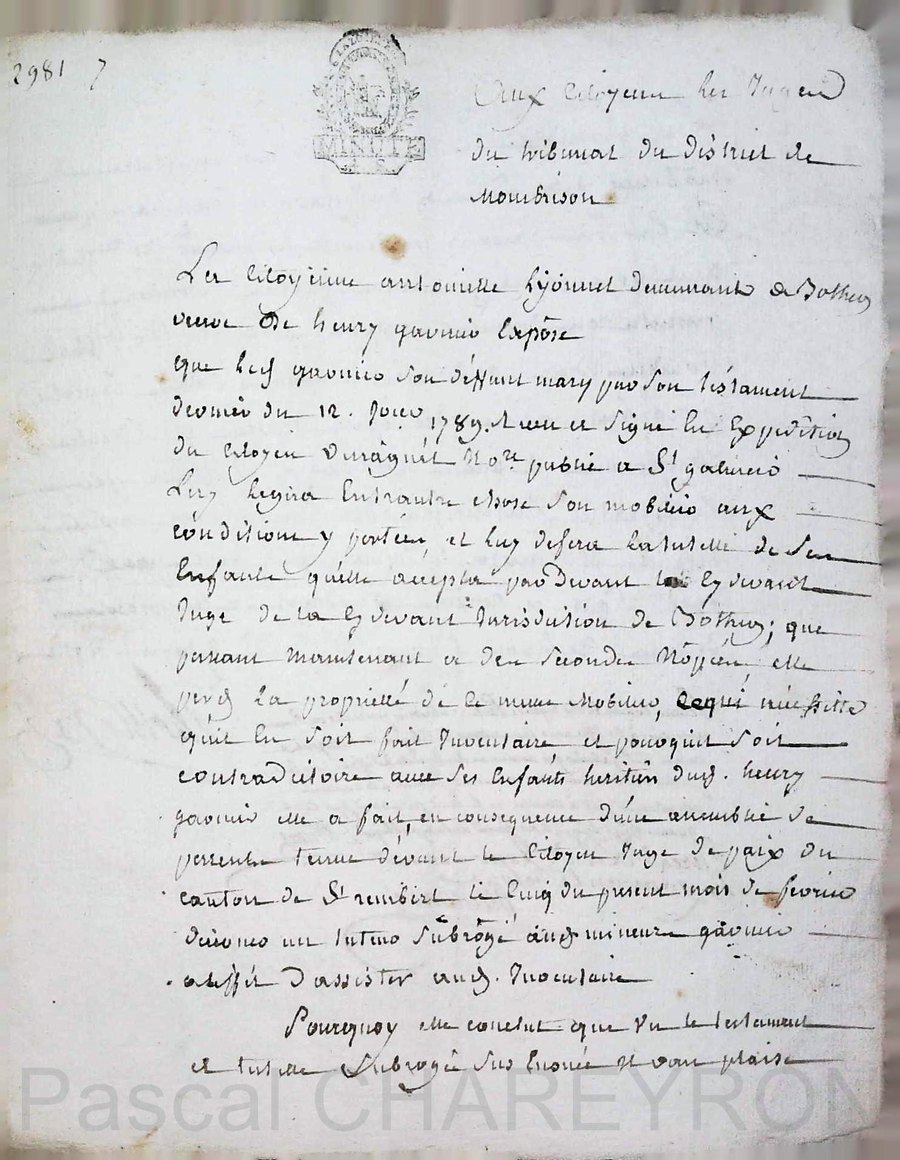 2981 7
MINUTE
Aux Citoyens les Juges
du tribunal du district de
Montbrison
La Citoyenne antoinette Lyonnet demeurante a Botheon
veuve de henry garnier Expose
que led garnier son deffunt mary par son testament
dernier du 12. 1789. Recu et signé En Expedition
du Citoyen Not.re public a St galmier
Luy legua Entrautre chose son mobilier aux
conditions y portées, et luy defera la tutelle de ses
Enfants quelle accepta par Devant le Cy devant
Juge de la Cy devant Jurisdiction de Botheon; que
passant maintenant a des secondes Nopces elle
perd la proprieté de ce meme Mobilier, cequi necessitte
quil En soit fait Inventaire et pourquil soit
contradictoire avec ses Enfants heritiers dud. henry
garnier elle a fait, en consequence d'une assemblée de
parents tenue dévant le Citoyen Juge de paix du
canton de St rembert le Cinq du present mois de fevrier
décerner un tuteur Subrogé auxd mineurs garnier
a leffet d'assister aud. Inventaire
Pourquoy elle conclut que Vu le testament
et tutelle Subrogée sus Enoncée Il vous plaise
Pascal CHAREYRON